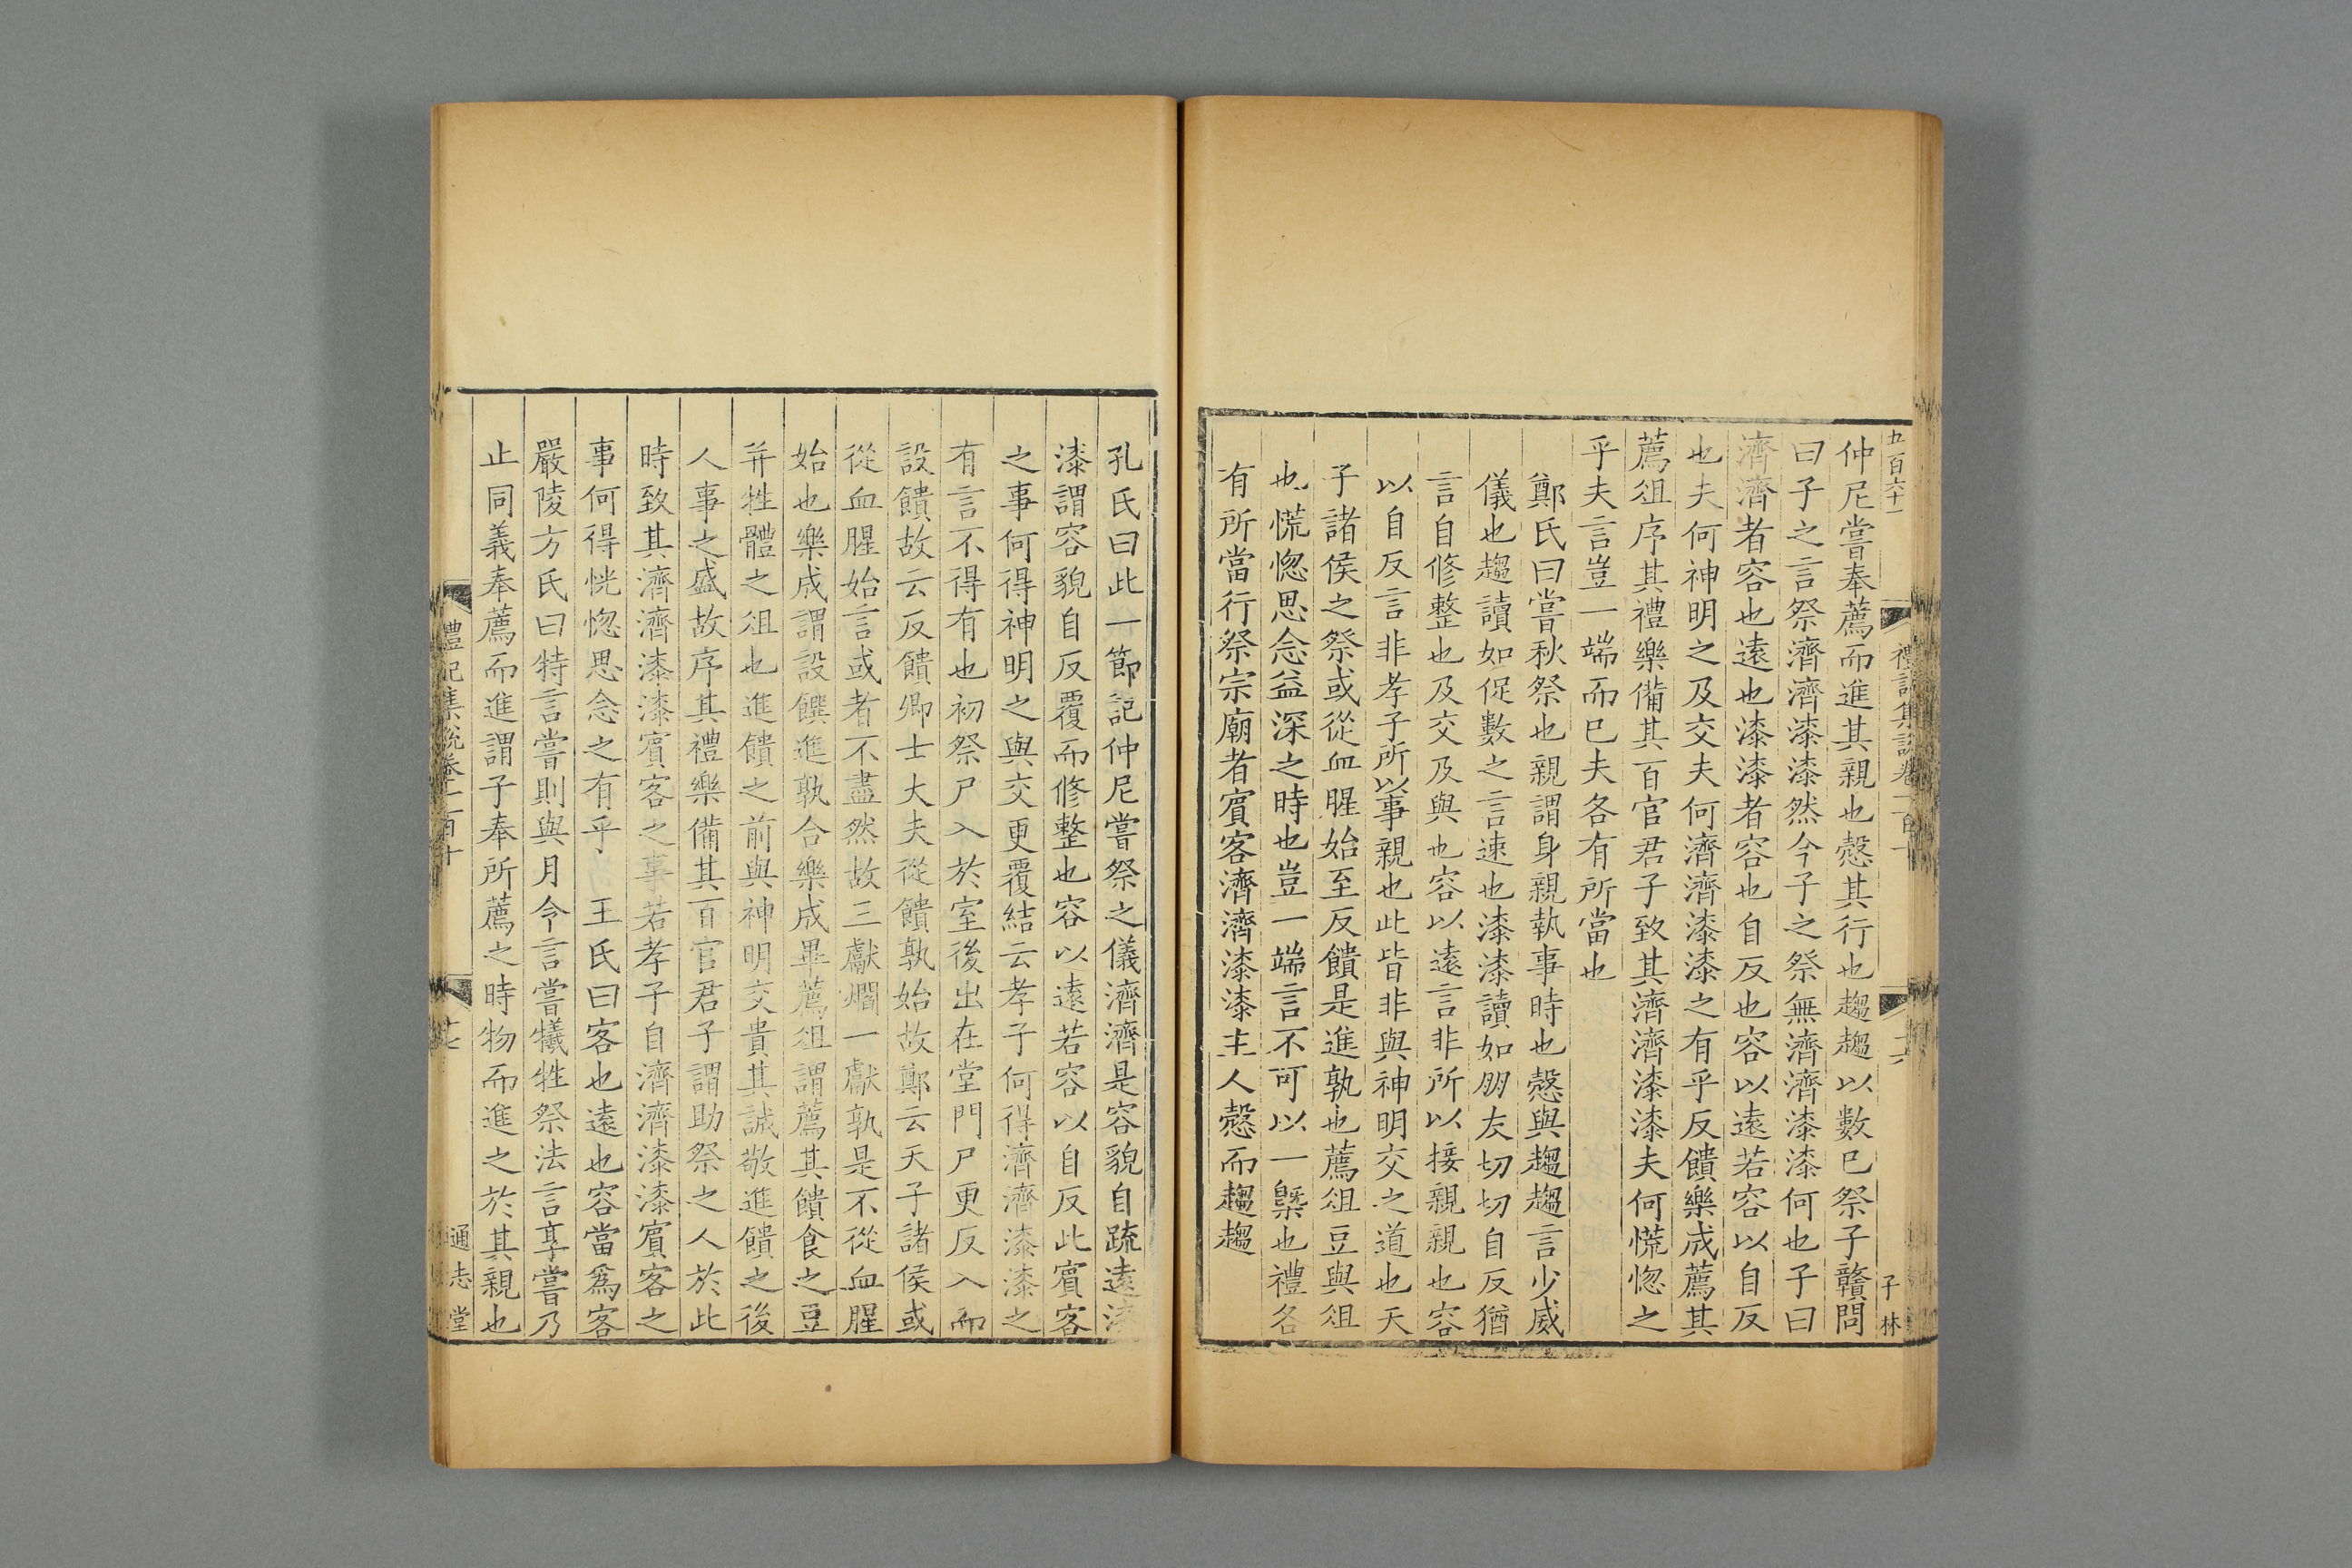 五百六十一
子林
仲尼嘗奉薦而進其親也慤其行也趨趨以數已祭子贛問
曰子之言祭濟濟漆漆然今子之祭無濟濟漆漆何也子曰
濟濟者容也遠也漆漆者容也自反也容以遠若容以自反
也夫何神明之及交夫何濟濟漆漆之有乎反饋樂成薦其
薦俎序其禮樂備其百官君子致其濟濟漆漆夫何慌惚之
乎夫言豈一端而已夫各有所當也
鄭氏曰嘗秋祭也親謂身親執事時也慤與趨趨言少威
儀也趨讀如促數之言速也漆漆讀如朋友切切自反猶
言自修整也及交及與也容以遠言非所以接親親也容
以自反言非孝子所以事親也此皆非與神明交之道也天
子諸侯之祭或從血腥始至反饋是進孰也薦俎豆與俎
也慌惚思念益深之時也豈一端言不可以一槩也禮各
有所當行祭宗廟者賓客濟濟漆漆主人慤而趨趨
孔氏曰此一節記仲尼嘗祭之儀濟濟是容貌自疏遠漆
漆謂容貌自反覆而修整也容以遠若容以自反此賓客
之事何得神明之與交更覆結云孝子何得濟濟漆漆之
有言不得有也初祭尸入於室後出在堂門尸更反入而
設饋故云反饋卿士大夫從饋孰始故鄭云天子諸侯或
從血腥始言或者不盡然故三獻爓一獻孰是不從血腥
始也樂成謂設饌進孰合樂成畢薦俎謂薦其饋食之豆
并牲體之俎也進饋之前與神明交貴其誠敬進饋之後
人事之盛故序其禮樂備其百官君子謂助祭之人於此
時致其濟濟漆漆賓客之事若孝子自濟濟漆漆賓客之
事何得恍惚思念之有乎　王氏曰客也遠也容當爲客
嚴陵方氏曰特言嘗則與月令言嘗犧牲祭法言享嘗乃
止同義奉薦而進謂子奉所薦之時物而進之於其親也
禮記集說卷一百十
通志堂